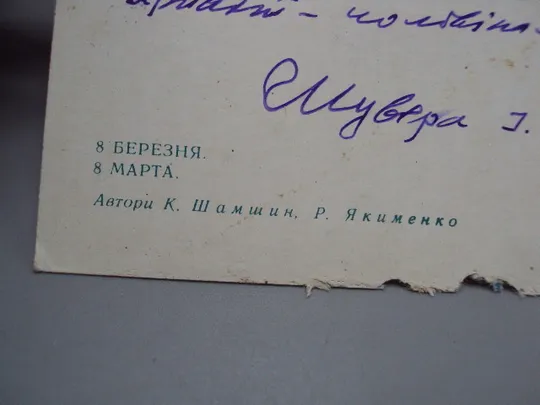 Шувера І.
8 БЕРЕЗНЯ.
8 МАРТА.
Автори К. Шамшин, Р. Якименко